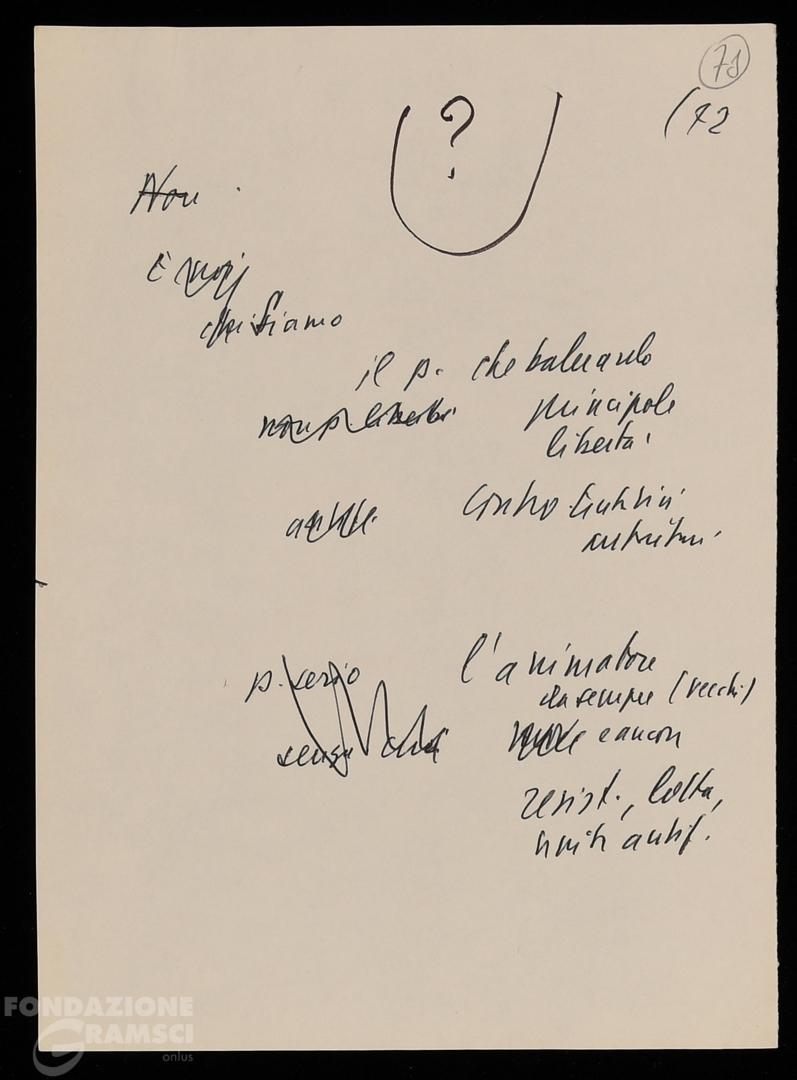 71
(72
?
Non
E noi
che siamo
il p. che baluardo
non p. libertà principale
libertà
contro
p. serio l'animatore
da sempre (vecchi)
senza e ancora
resist., lotta,
unità antif.
FONDAZIONE
GRAMSCI
onlus